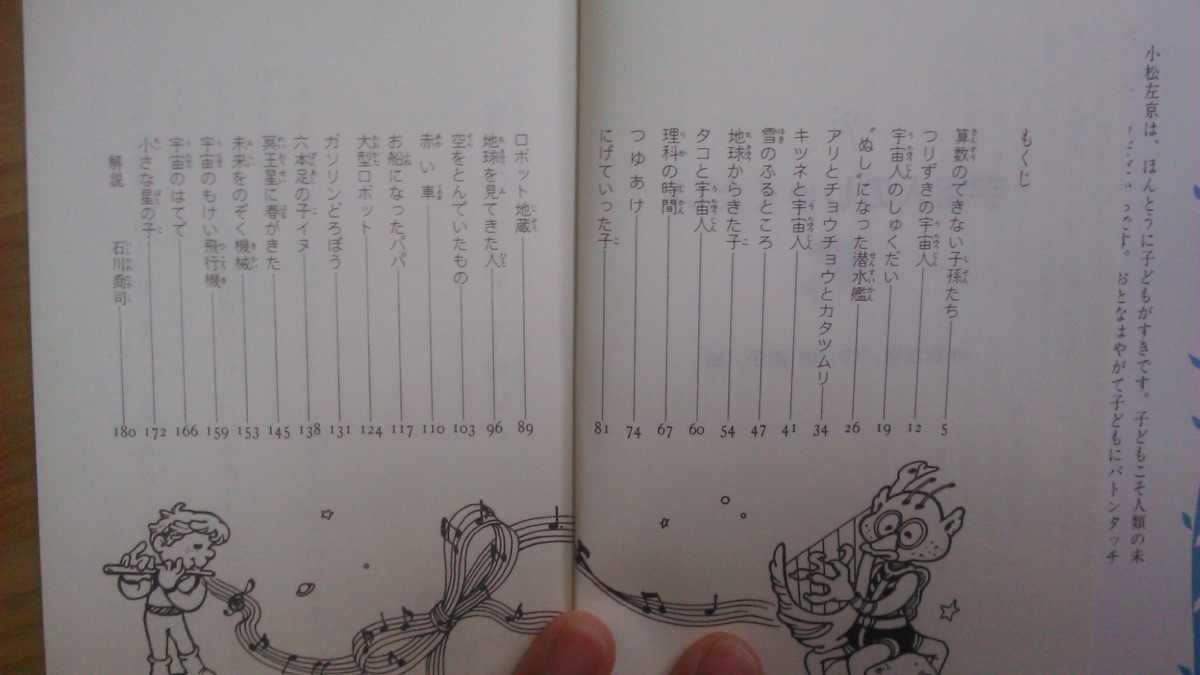 小松左京は、ほんとうに子どもがすきです。子どもこそ人類の未
です。おとなはやがて子どもにバトンタッチ
もくじ
算数のできない子孫たち 5
つりずきの宇宙人 12
宇宙人のしゅくだい 19
“ぬし”になった潜水艦 26
アリとチョウチョウとカタツムリ 34
キツネと宇宙人 41
雪のふるところ 47
地球からきた子 54
タコと宇宙人 60
理科の時間 67
つゆあけ 74
にげていった子 81
ロボット地蔵 89
地球を見てきた人 96
空をとんでいたもの 103
赤い車 110
お船になったパパ 117
大型ロボット 124
ガソリンどろぼう 131
六本足の子イヌ 138
冥王星に春がきた 145
未来をのぞく機械 153
宇宙のもけい飛行機 159
宇宙のはてで 166
小さな星の子 172
解説 石川喬司 180